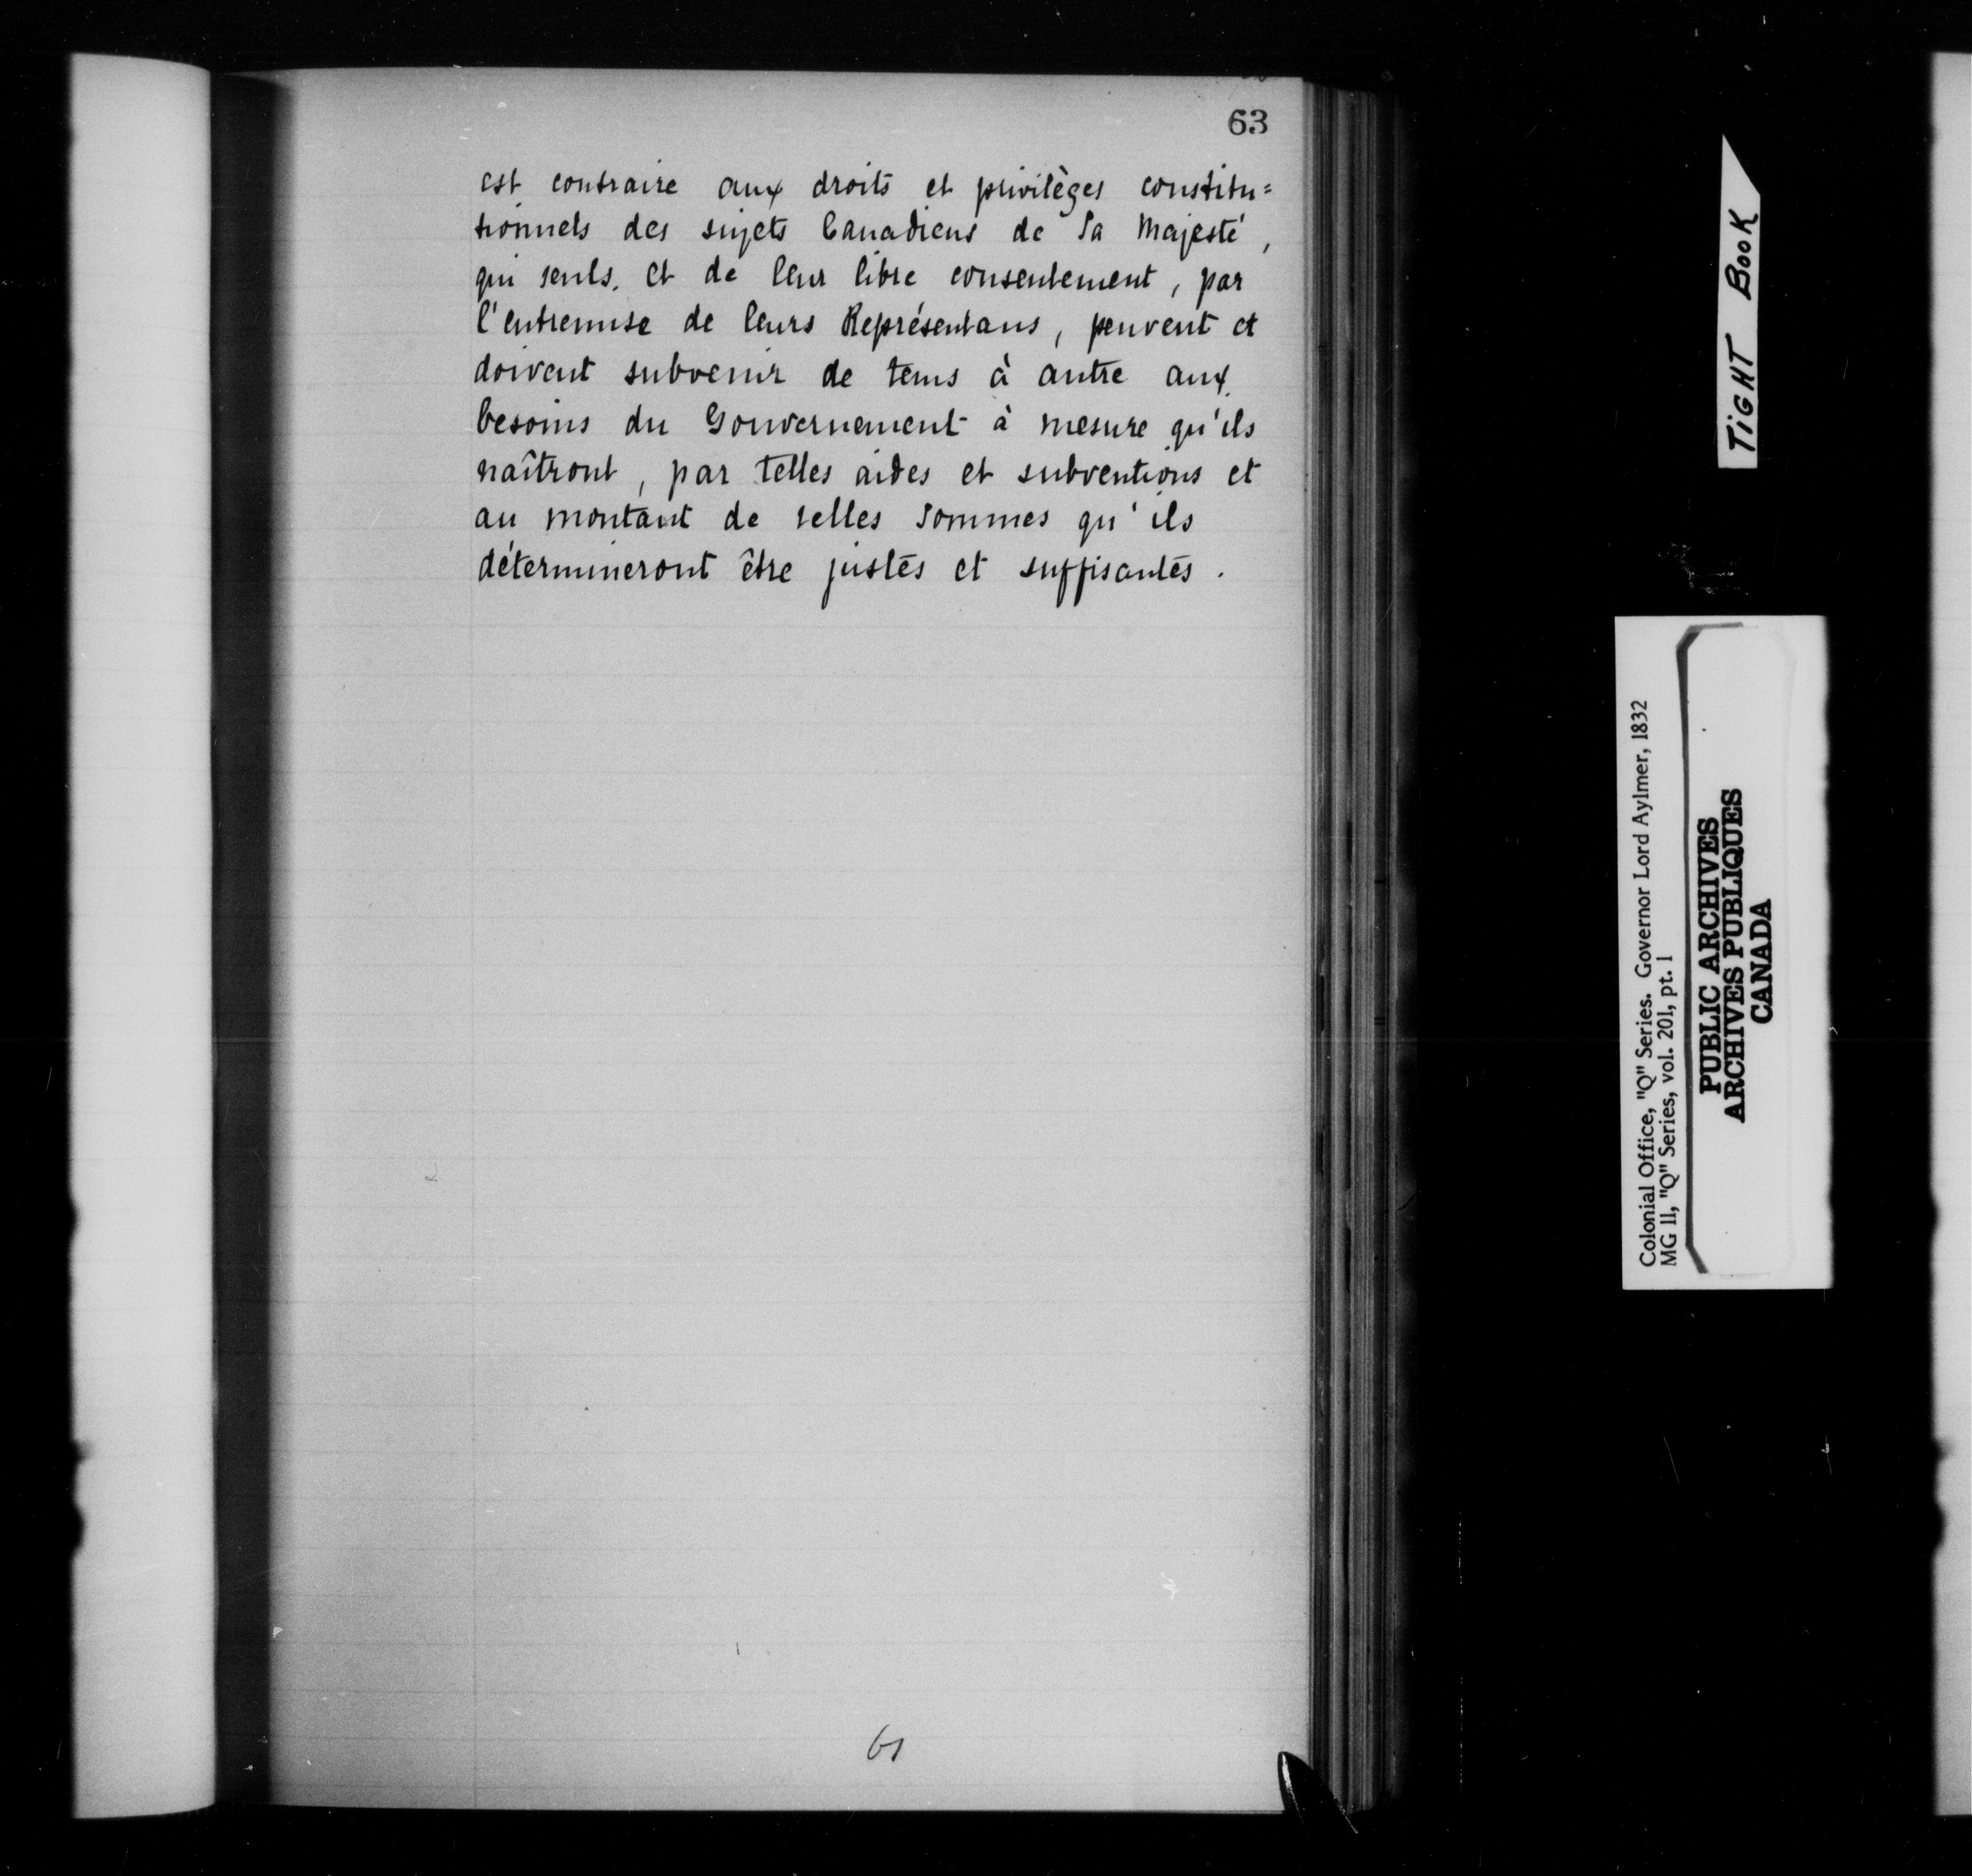 63
est contraire aux droits et privilèges constitu=
tionnels des sujets Canadiens de Sa Majesté,
qui seuls, et de leur libre consentement, par
l'entremise de leurs Représentans, peuvent et
doivent subvenir de tems à autre aux
besoins du Gouvernement à mesure qu'ils
naîtront, par telles aides et subventions et
au montant de telles sommes qu'ils
détermineront être justes et suffisantes.
61
TIGHT BOOK
Colonial Office, "Q" Series. Governor Lord Aylmer, 1832
MG 11, "Q" Series, vol. 201, pt. 1
PUBLIC ARCHIVES
ARCHIVES PUBLIQUES
CANADA